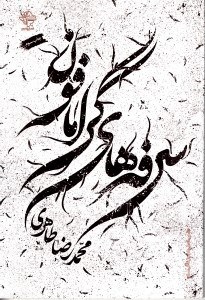 سرفه‌های گرامافون
محمدرضا طاهری